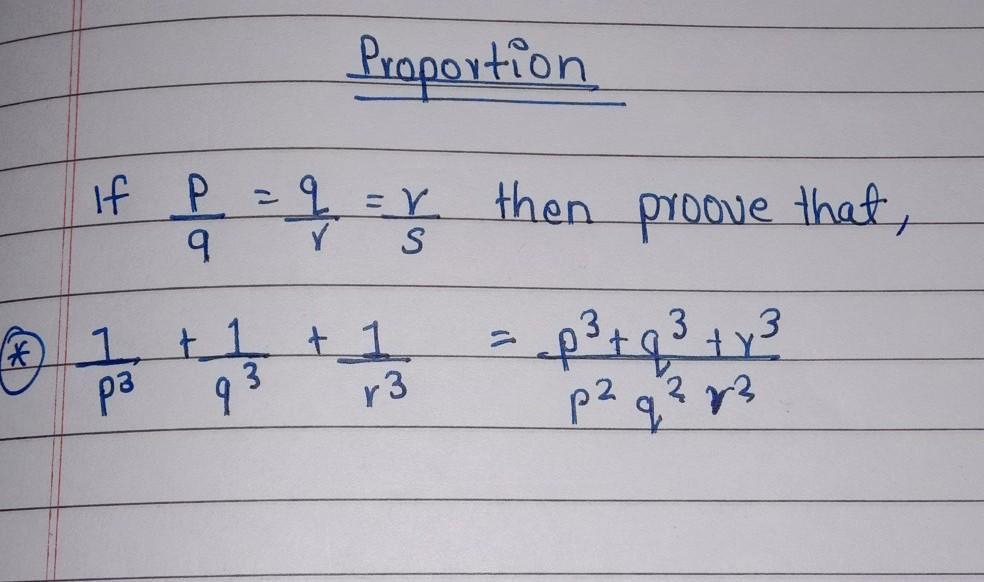 Proportion
If p/q = q/r = r/s then proove that,
* 1/p³ + 1/q³ + 1/r³ = p³+q³+r³/p² q² r²